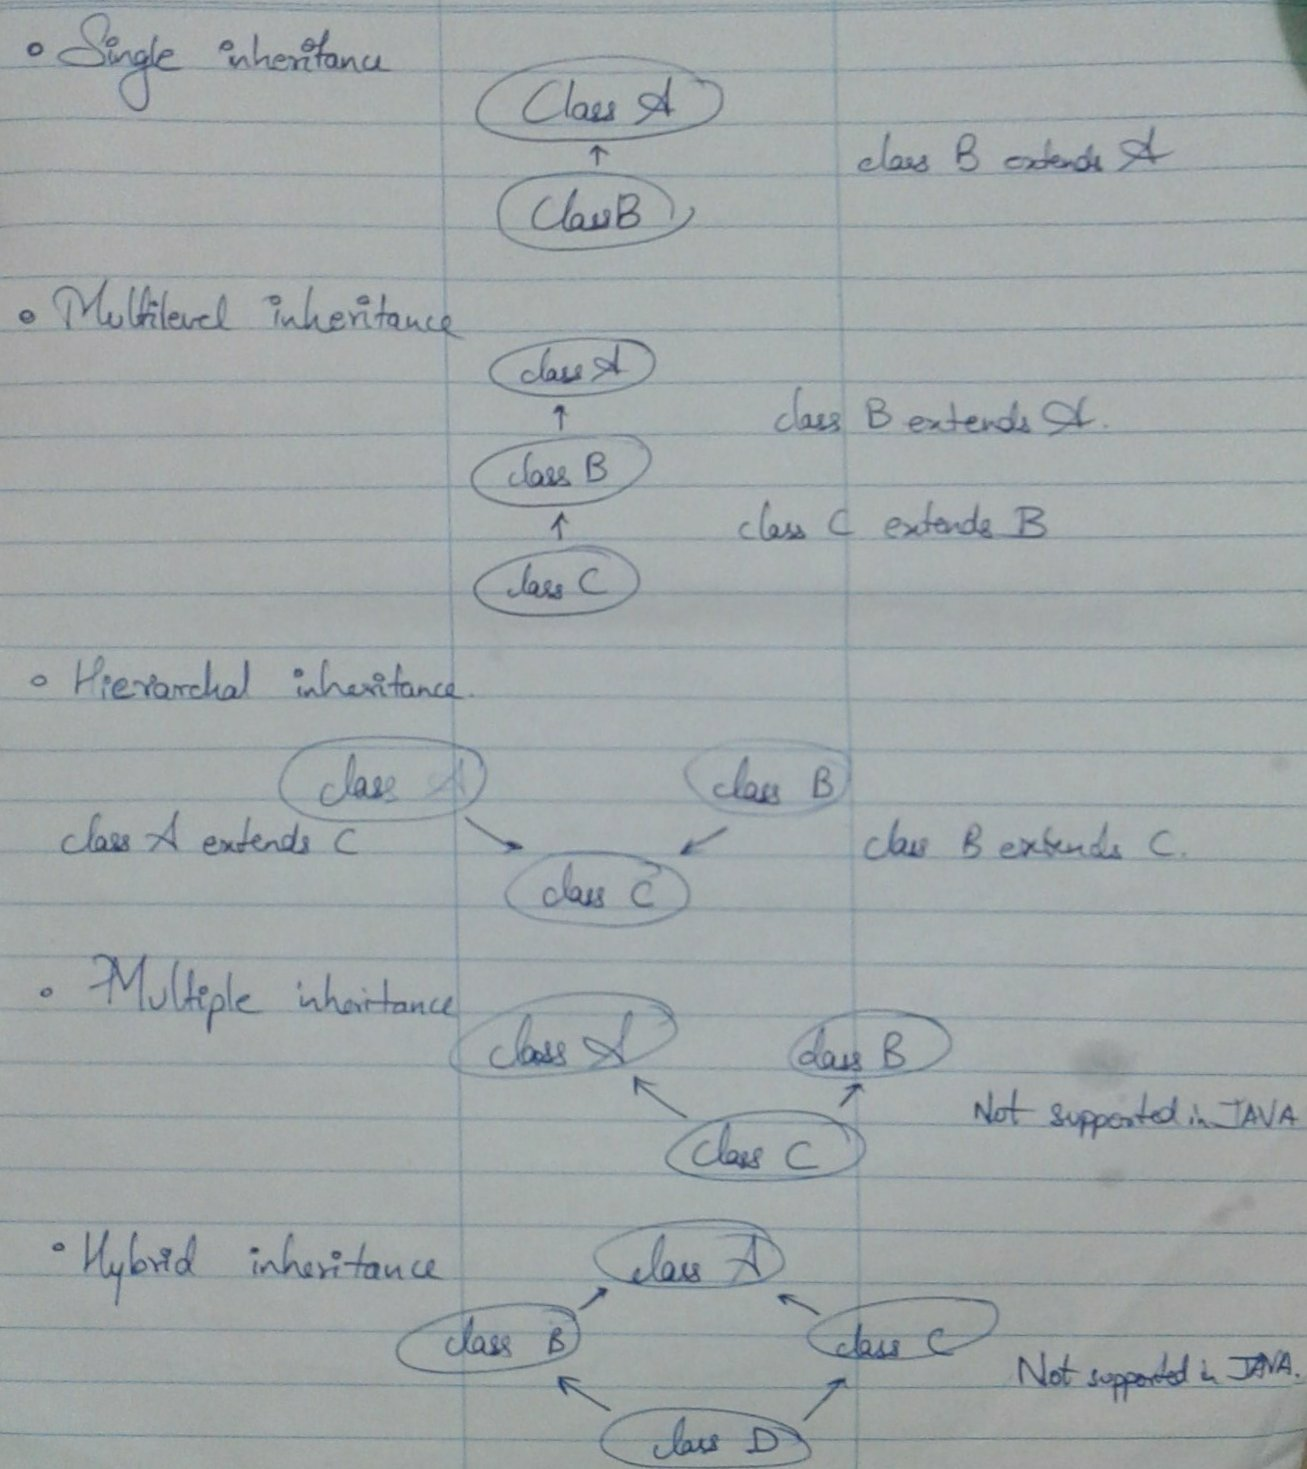 • Single inheritance
Class A
class B extends A
Class B
• Multilevel inheritance
class A
class B extends A.
class B
class C extends B
class C
• Hierarchal inheritance.
class A
class B
class A extends C
class B extends C.
class C
• Multiple inheritance
class A
class B
Not supported in JAVA
class C
• Hybrid inheritance
class A
class B
class C
Not supported in JAVA.
class D